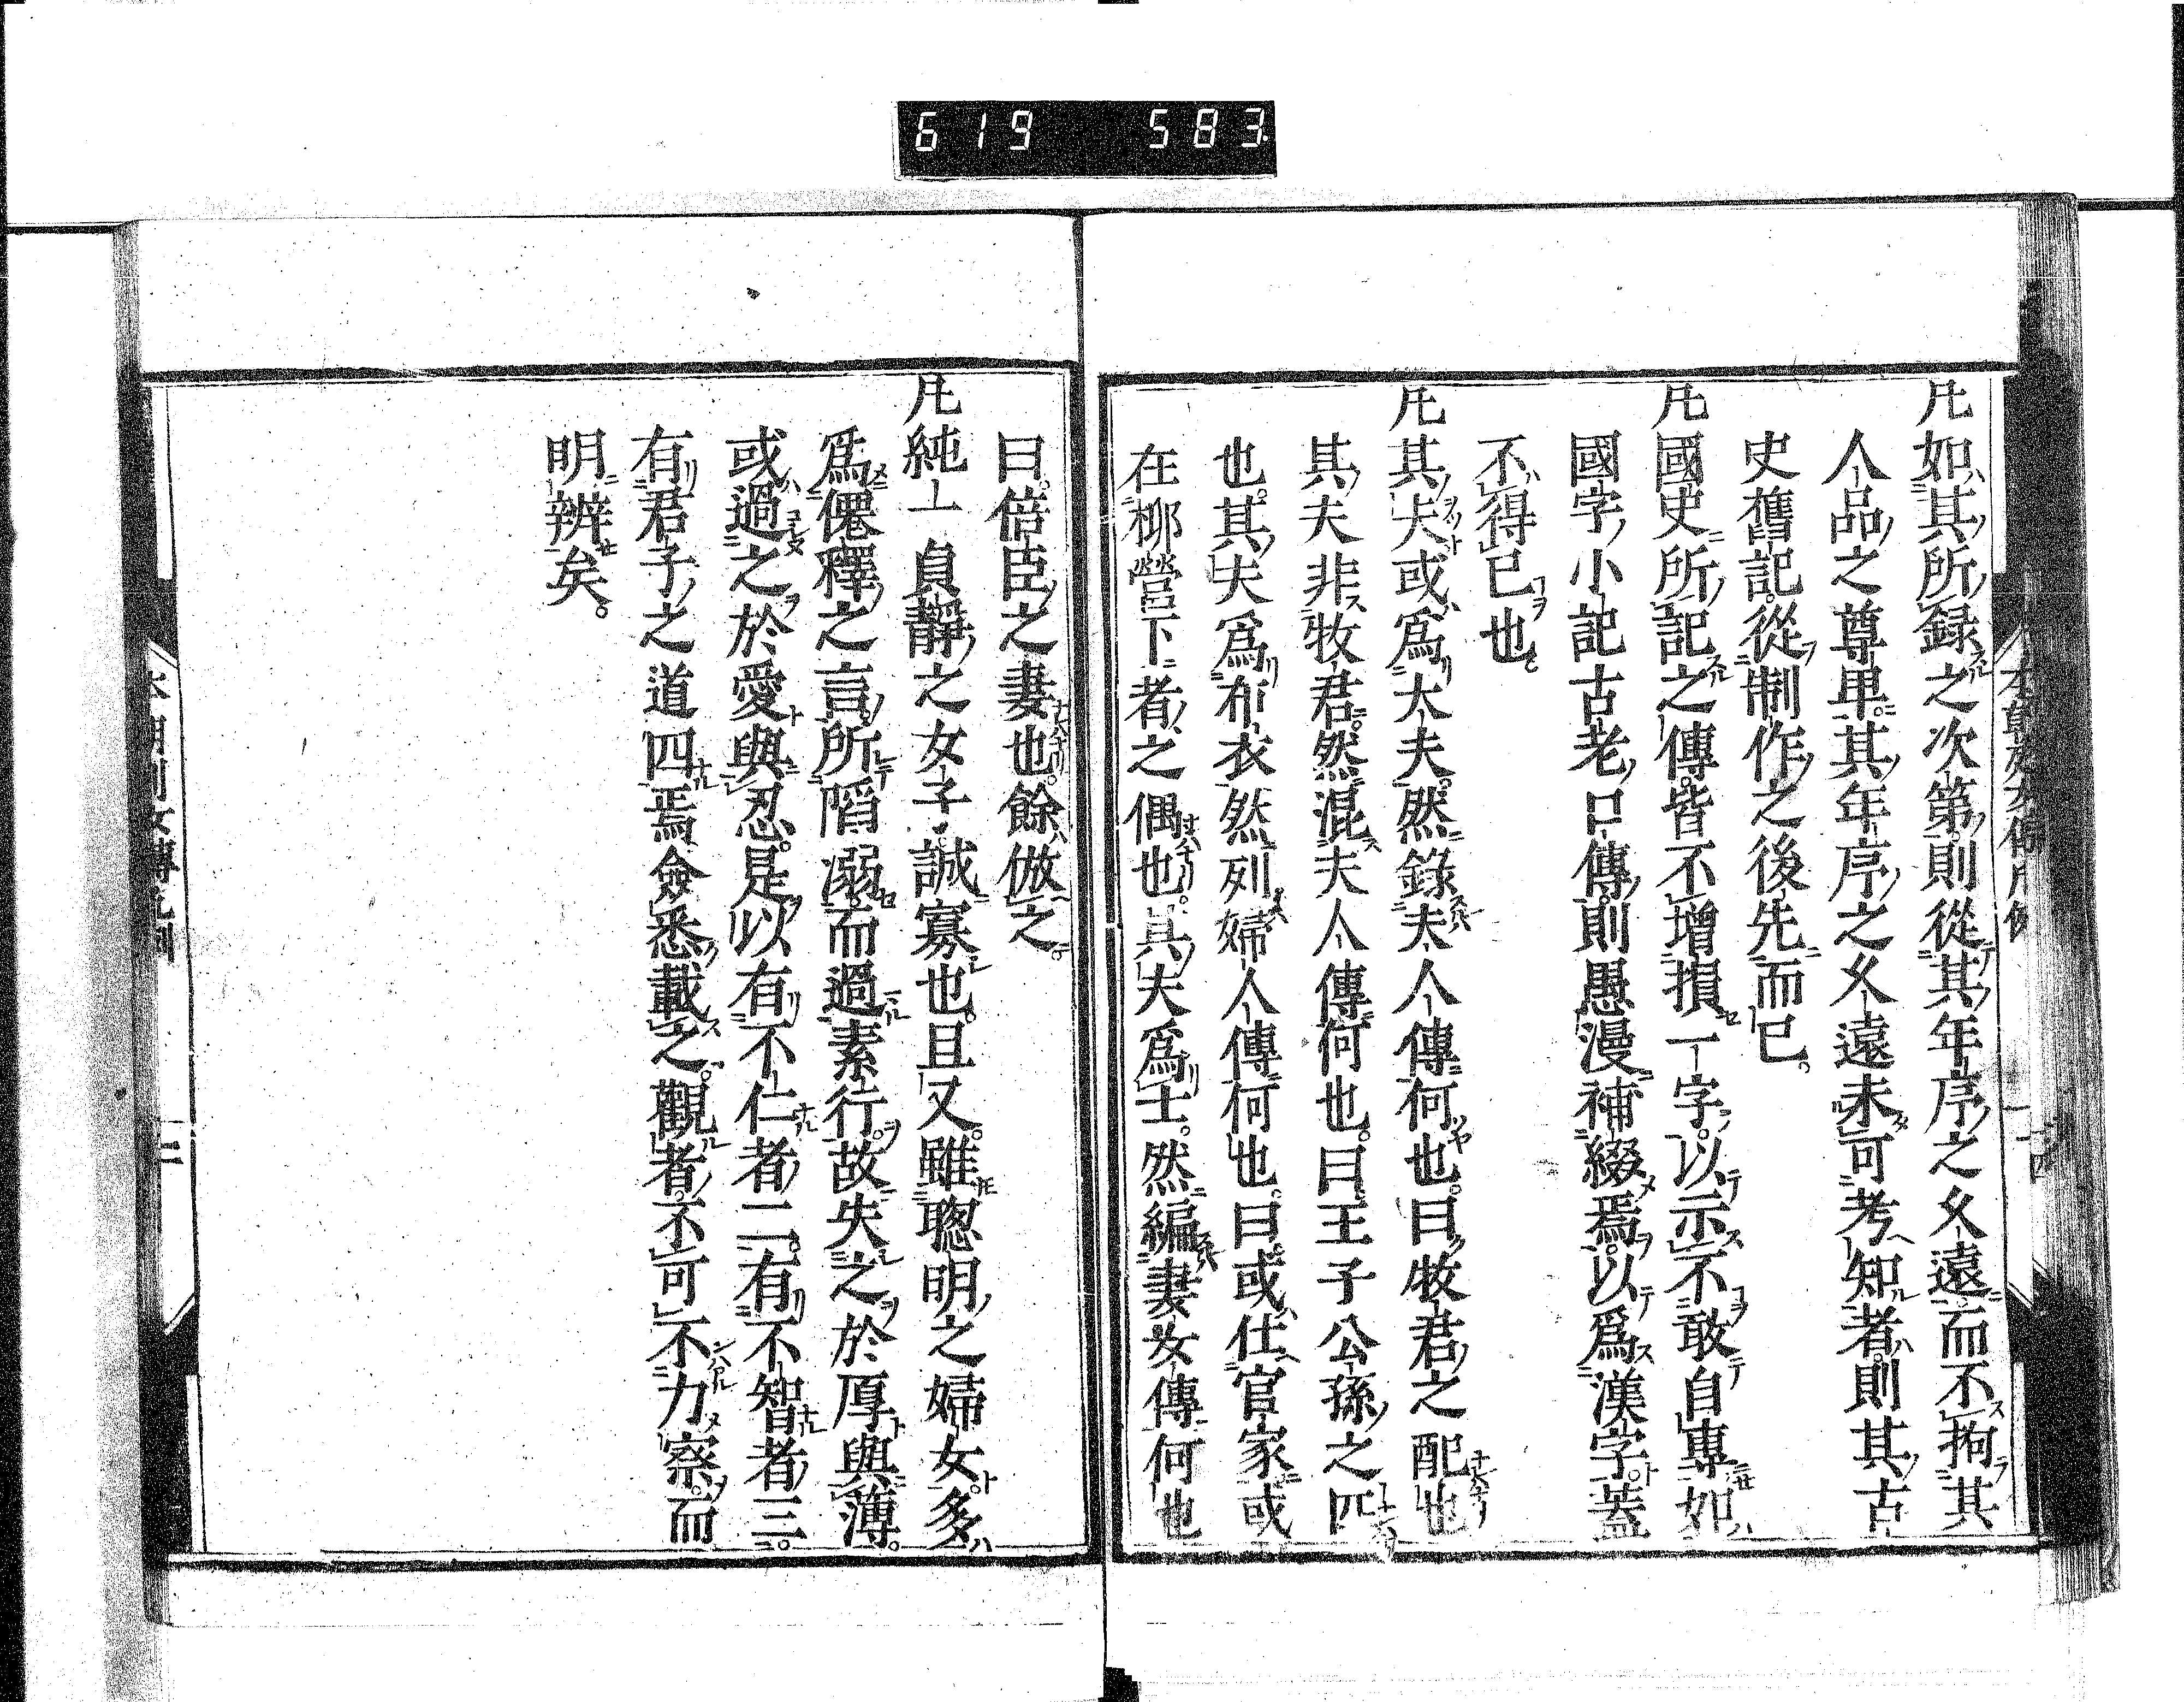 619 583
凡如其所録之次第則從其年序之久遠而不拘其
人品之尊卑其年序之久遠未可考知者則其古
史舊記從制作之後先而已
凡國史所記之傳皆不增損一字以示不敢自專如
國字小記古老口傳則愚漫補綴焉以爲漢字蓋
不得已也
凡其夫或爲大夫然錄夫人傳何也曰牧君之配也
其夫非牧君然混夫人傳何也曰王子公孫之匹
也其夫爲布衣然列婦人傳何也曰或仕官家或
在柳營下者之偶也其夫爲士然編妻女傳何也
曰倍臣之妻也餘倣之
凡純一貞靜之女子誠寡也且又雖聰明之婦女多
爲僊釋之言所陷溺而過素行故失之於厚與薄
或過之於愛與忍是以有不仁者二有不智者三
有君子之道四焉僉悉載之觀者不可不力察而
明辨矣
本朝列女傳凡例 二